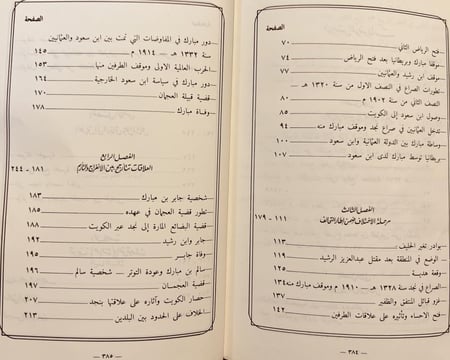 الصفحة
فتح الرياض الثاني ٧٠
موقفا مبارك وبريطانيا بعد فتح الرياض ٧٤
موقف ابن رشيد والعثمانيين ٧٧
تطورات الصراع في النصف الاول من سنة ١٣٢٠ هـ -
النصف الثاني من ١٩٠٢ م ٨٠
وصول ابن سعود إلى الكويت ٨٥
تدخل العثمانيين في صراع نجد وموقف مبارك منه ٩٤
وساطة مبارك بين الدولة العثمانية وابن سعود ١٠٠
بريطانيا توسط مبارك لدى ابن سعود ١٠٧
الفصل الثالث
مرحلة الاختلاف ضمن إطار التحالف ١١١ - ١٧٩
بوادر تغير الحليف ١١٣
الوضع في المنطقة بعد مقتل عبدالعزيز الرشيد ١١٩
وقعة هدية ١٢٥
الصراع في نجد سنة ١٣٢٨ هـ - ١٩١٠ م وموقف مبارك منه ١٣٤
غزو قبائل المنتفق والظفير ١٣٧
فتح الاحساء وتأثيره على علاقات الطرفين ١٤٢
— ٣٨٤ —
الصفحة
دور مبارك في المفاوضات التي تمت بين ابن سعود والعثمانيين
سنة ١٣٣٢ هـ - ١٩١٤ م ١٤٥
الحرب العالمية الأولى وموقف الطرفين منها ١٥٣
دور مبارك في سياسة ابن سعود الخارجية ١٦٤
قضية قبيلة العجمان ١٧٠
وفاة مبارك ١٧٨
الفصل الرابع
العلاقات تتأرجح بين الانفراج والتأزم ١٨١ - ٢٤٤
شخصية جابر بن مبارك ١٨٣
تطور قضية العجمان في عهده ١٨٥
قضية البضائع المارة إلى نجد عبر الكويت ١٨٨
جابر وابن رشيد ١٩٢
وفاة جابر ١٩٥
سالم بن مبارك وعودة التوتر - شخصية سالم ١٩٦
قضية العجمان ١٩٧
حصار الكويت وآثاره على علاقتها بنجد ٢٠٧
الخلاف على الحدود بين البلدين ٢١٣
— ٣٨٥ —